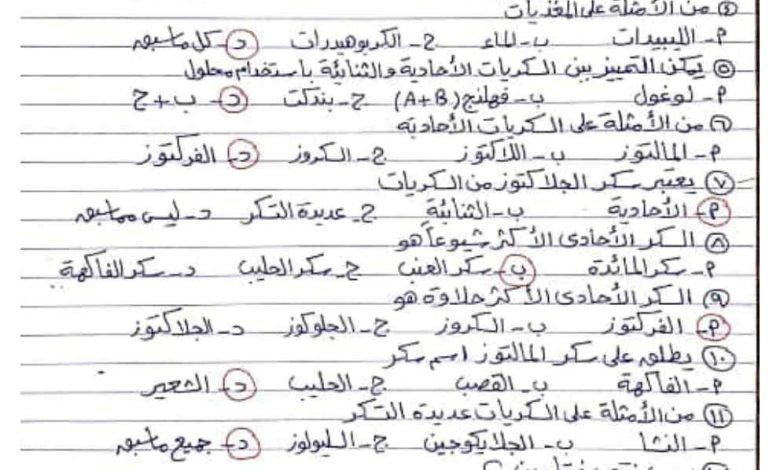 ④ من الأمثلة على المغذيات
أ- الليبيدات ب- الماء ج- الكربوهيدرات د- كل ماسبق
⑤ يمكن التمييز بين السكريات الأحادية والثنائية باستخدام محلول
أ- لوغول ب- فهلنج (A+B) ج- بندكت د- ب + ج
⑥ من الأمثلة على السكريات الأحادية
أ- المالتوز ب- اللاكتوز ج- السكروز د- الفركتوز
⑦ يعتبر سكر الجلاكتوز من السكريات
أ- الأحادية ب- الثنائية ج- عديدة التسكر د- ليس مماسبق
⑧ السكر الأحادى الأكثر شيوعاً هو
أ- سكر المائدة ب- سكر العنب ج- سكر الحليب د- سكر الفاكهة
⑨ السكر الأحادى الأكثر حلاوة هو
أ- الفركتوز ب- السكروز ج- الجلوكوز د- الجلاكتوز
⑩ يطلق على سكر المالتوز اسم سكر
أ- الفاكهة ب- القصب ج- الحليب د- الشعير
⑪ من الأمثلة على السكريات عديدة التسكر
أ- النشا ب- الجلايكوجين ج- السليولوز د- جميع ماسبق